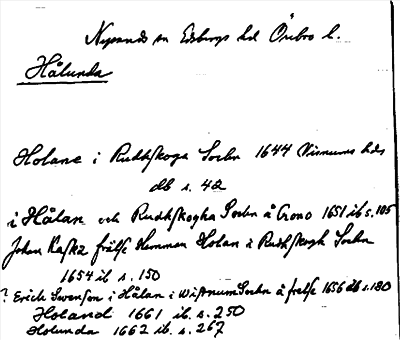 Nysunds sn Edsbergs hd Örebro l.
Hålunda
Holane i Rudhskoga Sochn 1644 Visnums hds
db s. 42
i Hålan och Rudhskogha Sochn å Crono 1651 ib s. 105
Johan Kaska frälse Hemman Holan i Rudhskogh Sochn
1654 ib s. 150
? Erich Swenson i Hålan i Wisnum Sochn å frelse 1656 db s. 180
Holand 1661 ib. s. 250
Holunda 1662 ib. s. 267